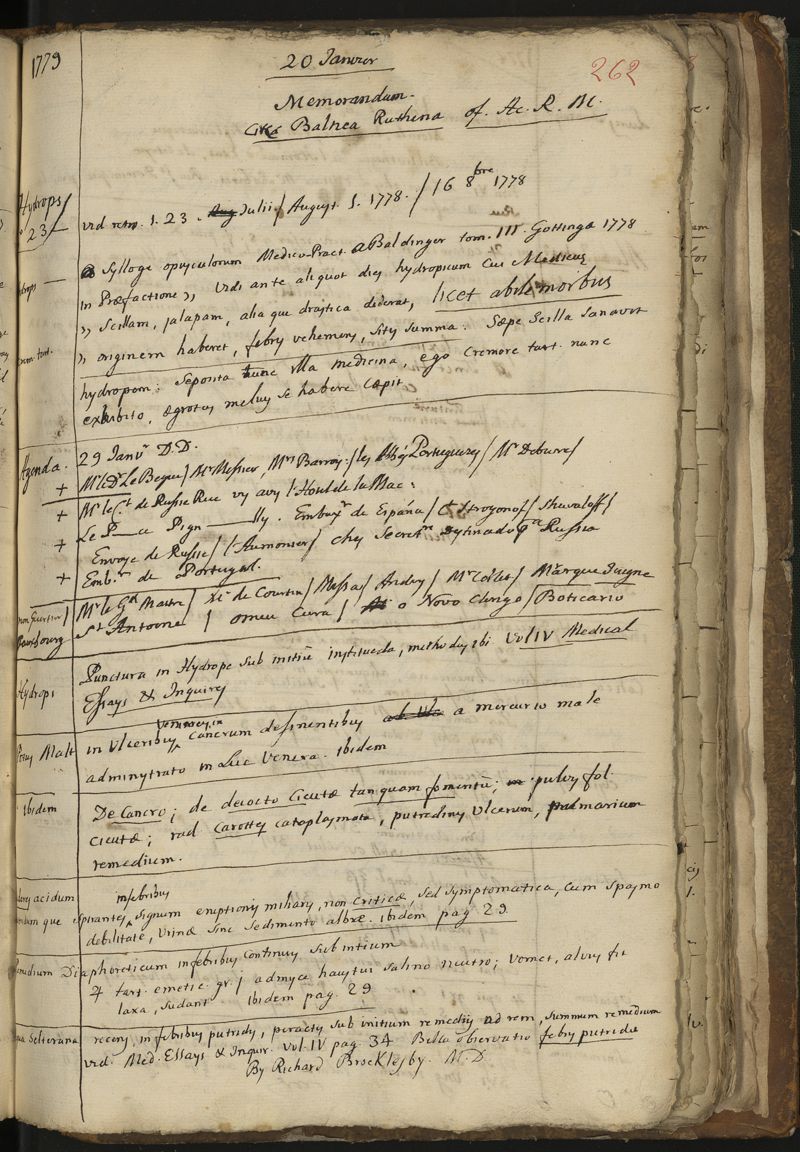 1779
20 Janvier
262
Memorandum.
Balnea Ruthena of. Ac. R. M.
Hydrops
23
vid retro. 1. 23. Aug Julii / August. 1. 1778. / 16 8bre 1778
Sylloge opusculorum Medico-Pract. a Baldinger tom. III. Gottinga 1778
in Præfactione ,, Vidi ante aliquot dies hydropicum cui Medicus
,, Scillam, jalapam, alia que drastica dederat, licet ab ile morbus
,, originem haberet, febris vehemens, sitis summa. Sæpe Scilla Sanavit
hydropem: Seposita hunc illa medicina, ego Cremore tart. nunc
exhibito, ægrotus melius se habere cæpit
Agenda.
29 Janvr D.D.
+ Mr le Dr Le Begue / Mr Messier, Mrs Barroy / les Abbés Portugueses / Mr Debure /
+ Mr le Ct de Russie Rue vis avis l'Hotel de la Mac:
+ Le P—e Pign—lly. Embaxr de España / Ct Strogonof / Shuvaloff /
Envoye de Russie / l'Aumonier / chez Secretro destinado pa Russia
+ Embr de Portugal.
Mr le Gd Maitre / Ct de Courtin / Messa / Andry / Mr Collet / Marque Jayne
St Antoine / o meu Cura / o Novo Clerigo / Boticario
Hydrops
Punctura in Hydrope sub initiū instituenda, methodus ibi Vol IV Medical
Essays & Inquires
in Ulceribus venereis in Cancrum desinentibus a mercurio male
adminystrato in Lue Venera. ibidem
Ibidem
De Cancro; de decocto Cicutæ tanquam fomentū; pulvis fol.
Cicutæ; rad Carottes cataplasmata, putredinis Ulcerum, palmarium
remedium.
acidum
que spirantes in febribus, signum eruptionis miliaris, non Criticæ, Sed Symptomatica, Cum Spasmo
debilitate, Urinæ Sine Sedimento albæ. ibidem pag 29
Diaphoreticum in febribus Continuis Sub initium
♃ tart. emetic. gr. j admyce haustui salino neutro; Vomet, alvus fit
laxa, sudant. Ibidem pag. 29
Selterana recens, in febribus putridis, peractis sub initium remediis ad rem, summum remedium
vid. Med. Essays & Inquir. Vol. IV pag. 34 Bella observatio febris putridæ
By Richard Brocklesby. M.D